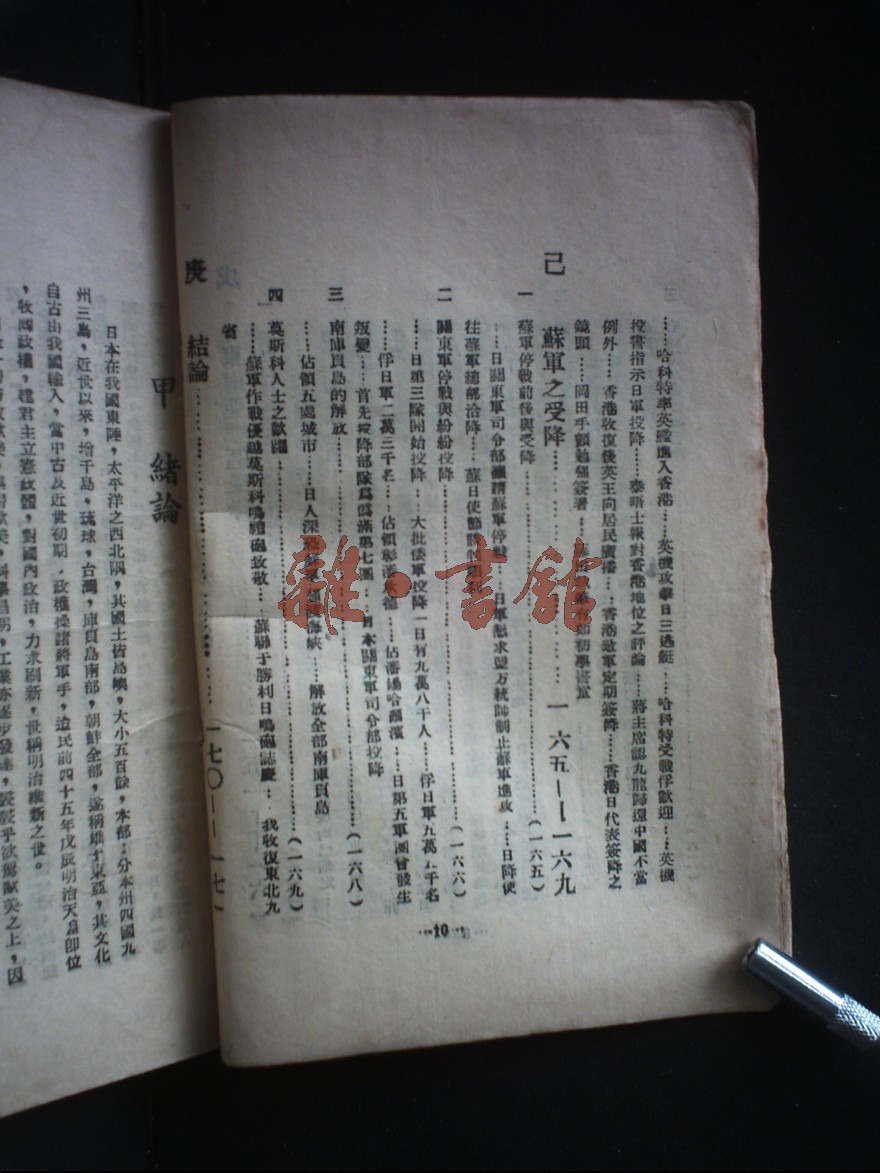 三……哈科特率英艦進入香港……英機攻擊日三逃艇……哈科特受戰俘歡迎……英機
投書指示日軍投降……泰晤士報對香港地位之評論……蔣主席認九龍歸還中國不當
例外……香港收復後英王向居民廣播……香港敵軍定期簽降……香港日代表簽降之
鏡頭……岡田手顫勉強簽署……如初學書寫
己 蘇軍之受降……一六五——一六九
一 蘇軍停戰前後與受降……(一六五)
……日關東軍司令部續請蘇軍停戰……日軍懇求盟方統帥制止蘇軍進攻……日降使
往蘇軍總部洽降……蘇日使節
二 關東軍停戰與紛紛投降……(一六六)
……日第三隊開始投降……大批倭軍投降一日有九萬八千人……俘日軍五萬五千名
……俘日軍二萬三千名……佔領……德……佔瀋陽哈爾濱……日第五軍團曾發生
叛變……首先投降部隊爲僞滿第七團……日本關東軍司令部投降
三 南庫頁島的解放……(一六八)
……佔領五處城市……日人深……海峽……解放全部南庫頁島
四 莫斯科人士之歡騰……(一六九)
……蘇軍作戰優越莫斯科鳴禮砲致敬……蘇聯于勝利日鳴砲誌慶……我收復東北九
省
庚 結論……一七〇——一七一
10
雜·書館
甲 緒論
日本在我國東陲,太平洋之西北隅,其國土皆島嶼,大小五百餘,本部:分本州四國九
州三島,近世以來,增千島,琉球,台灣,庫頁島南部,朝鮮全部,遂稱雄于東亞,其文化
自古由我國輸入,當中古及近世初期,政權操諸將軍手,迨民前四十五年戊辰明治天皇卽位
,收回政權,建君主立憲政體,對國內政治,力求刷新,世稱明治維新之世。
科學昌明,工業亦逐步發達,駸駸乎欲駕歐美之上,因